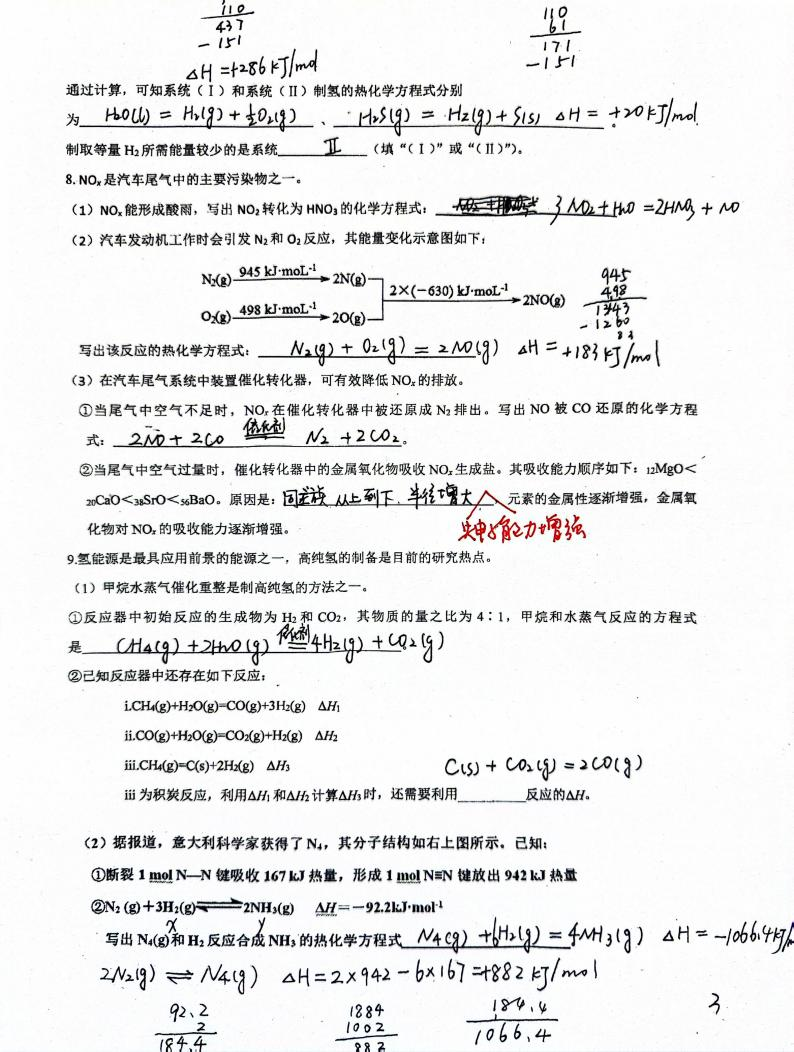 110
437
- 151
ΔH = +286 kJ/mol
110
61
171
- 151
通过计算，可知系统（Ⅰ）和系统（Ⅱ）制氢的热化学方程式分别
为 H₂O(l) = H₂(g) + ½O₂(g) 、 H₂S(g) = H₂(g) + S(s) ΔH = +20 kJ/mol.
制取等量 H₂ 所需能量较少的是系统 Ⅱ （填“(Ⅰ)”或“(Ⅱ)”）。
8. NOₓ 是汽车尾气中的主要污染物之一。
（1）NOₓ 能形成酸雨，写出 NO₂ 转化为 HNO₃ 的化学方程式： 3NO₂ + H₂O = 2HNO₃ + NO
（2）汽车发动机工作时会引发 N₂ 和 O₂ 反应，其能量变化示意图如下：
N₂(g) 945 kJ·moL⁻¹ → 2N(g)
2×(−630) kJ·moL⁻¹ → 2NO(g)
O₂(g) 498 kJ·moL⁻¹ → 2O(g)
945
498
1443
- 1260
83
写出该反应的热化学方程式： N₂(g) + O₂(g) = 2NO(g) ΔH = +183 kJ/mol
（3）在汽车尾气系统中装置催化转化器，可有效降低 NOₓ 的排放。
①当尾气中空气不足时，NOₓ 在催化转化器中被还原成 N₂ 排出。写出 NO 被 CO 还原的化学方程
式： 2NO + 2CO 催化剂 N₂ + 2CO₂ 。
②当尾气中空气过量时，催化转化器中的金属氧化物吸收 NOₓ 生成盐。其吸收能力顺序如下：₁₂MgO＜
₂₀CaO＜₃₈SrO＜₅₆BaO。原因是： 同主族 从上到下. 半径增大 ，元素的金属性逐渐增强，金属氧
失电子能力增强
化物对 NOₓ 的吸收能力逐渐增强。
9.氢能源是最具应用前景的能源之一，高纯氢的制备是目前的研究热点。
（1）甲烷水蒸气催化重整是制高纯氢的方法之一。
①反应器中初始反应的生成物为 H₂ 和 CO₂，其物质的量之比为 4∶1，甲烷和水蒸气反应的方程式
是 CH₄(g) + 2H₂O(g) 催化剂 = 4H₂(g) + CO₂(g)
②已知反应器中还存在如下反应：
i.CH₄(g)+H₂O(g)=CO(g)+3H₂(g) ΔH₁
ii.CO(g)+H₂O(g)=CO₂(g)+H₂(g) ΔH₂
iii.CH₄(g)=C(s)+2H₂(g) ΔH₃
C(s) + CO₂(g) = 2CO(g)
iii 为积炭反应，利用ΔH₁ 和ΔH₂ 计算ΔH₃ 时，还需要利用________反应的ΔH。
（2）据报道，意大利科学家获得了 N₄，其分子结构如右上图所示。已知：
①断裂 1 mol N—N 键吸收 167 kJ 热量，形成 1 mol N≡N 键放出 942 kJ 热量
②N₂ (g)＋3H₂(g)⇌2NH₃(g) ΔH＝－92.2kJ·mol⁻¹
x y
写出 N₄(g)和 H₂ 反应合成 NH₃ 的热化学方程式 N₄(g) + 6H₂(g) = 4NH₃(g) ΔH = -1066.4 kJ/m
2N₂(g) ⇌ N₄(g) ΔH = 2×942 - 6×167 = +882 kJ/mol
92.2
2
184.4
1884
1002
882
184.4
1066.4
3